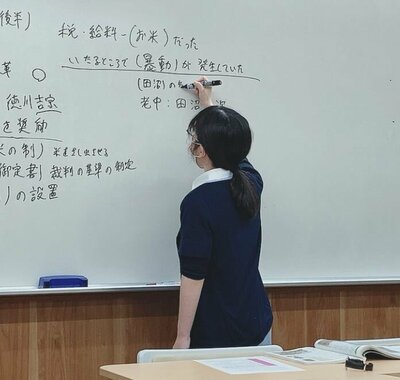 後半)
税・給料-(お米)だった
いたるところで(暴動)が発生していた
革
(田沼)の
徳川吉宗
老中:田沼 次
を奨励
米の制) 米を差し出させる
御定書) 裁判の基準の制定
)の設置